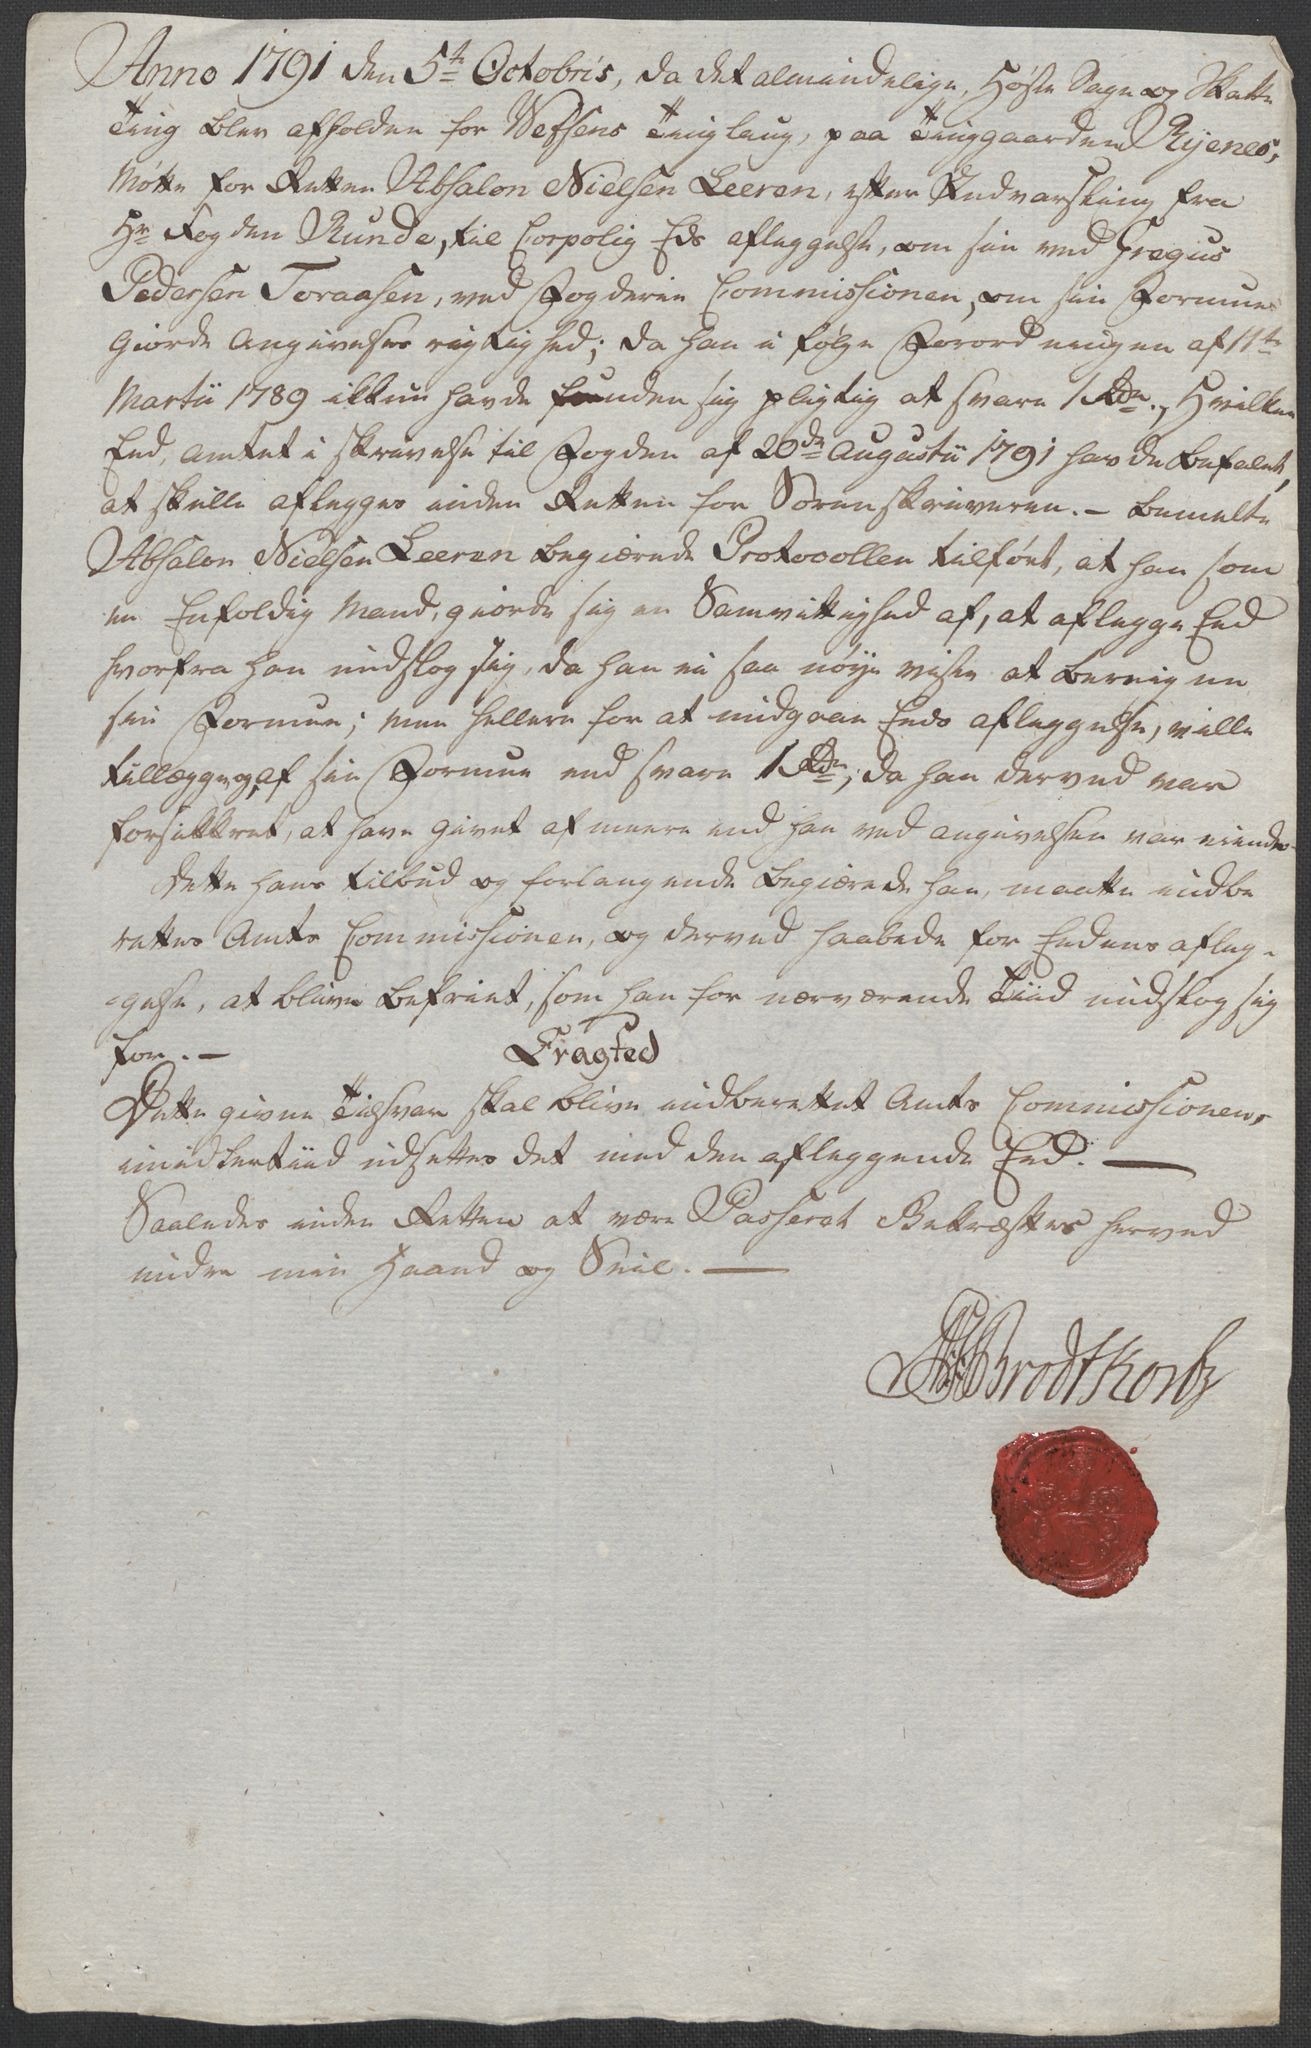 Anno 1791 den 5te Octobris, da det almindelige, Høste Sage og Skatte
Ting blev afholden for Wefsens Tinglaug, paa Tinggaarden Rÿenes,
Møtte for Retten Absalon Nielsen Leeren, efter Indvarsling fra
Hr Fogden Runde, til Corpolig Eds afleggelse, om sin ved Gregus
Pedersen Toraasen, ved Fogderie Commissionen, om sin Formue
giorde Angivelses rigtighed; da han i følge Forordningen af 11te
Martii 1789 ikkun havde funden sig pligtig at svare 1 Rdr., Hvilken
Eed, Amtet i skrivelse til Fogden af 20de Augustii 1791 havde befalet,
at skulle aflegges inden Retten for Sorenskriveren. - bemelte
Absalon Nielsen Leeren begiærede Protocollen tilført, at han som
en Enfoldig Mand, giorde sig en Samvittighed af, at aflegge Eed
hvorfra han undslog sig, da han ei saa nøye viste at beregne
sin Formue; men hellere for at undgaae Eeds afleggelse, ville
tillægge, af sin Formue end svare 1 Rdr; da han derved var
forsikkret, at have givet af meere end han ved angivelsen var eiende.
Dette hans tilbud og forlangende begiærede han, maatte indbe
rettes Amts Commissionen, og derved haabede for Eedens afleg-
-gelse, at blive befriet, som han for nærværende Tiid undslog sig
for. - Eragted
Dette givne Tilsvar skal blive indberettet Amts Commissionen,
imidlertiid udsettes det med den afleggende Eed. -
Saaledes inden Retten at være Passeret Bekræftes herved
under min Haand og Seil. -
Brodtkorb